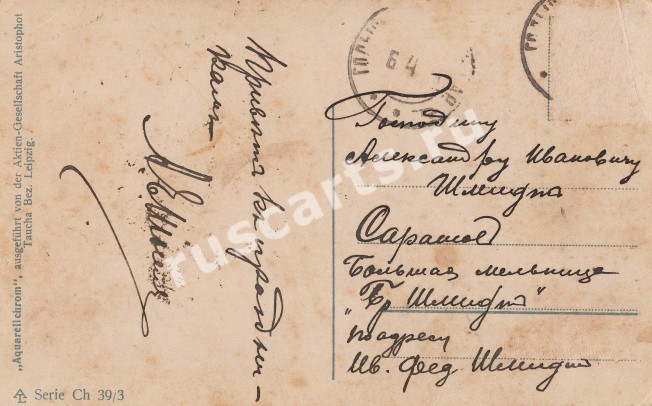 "Aquarellchrom", ausgeführt von der Aktien-Gesellschaft Aristophot
Taucha Bez. Leipzig.
Serie Ch 39/3
Приветъ къ праздни-
камъ
6 4
Господину
Александру Ивановичу
Шмидтъ
Саратовъ
Большая мельница
Бр Шмидтъ"
адресу
Ив. Фед. Шмидтъ
ruscarts.ru